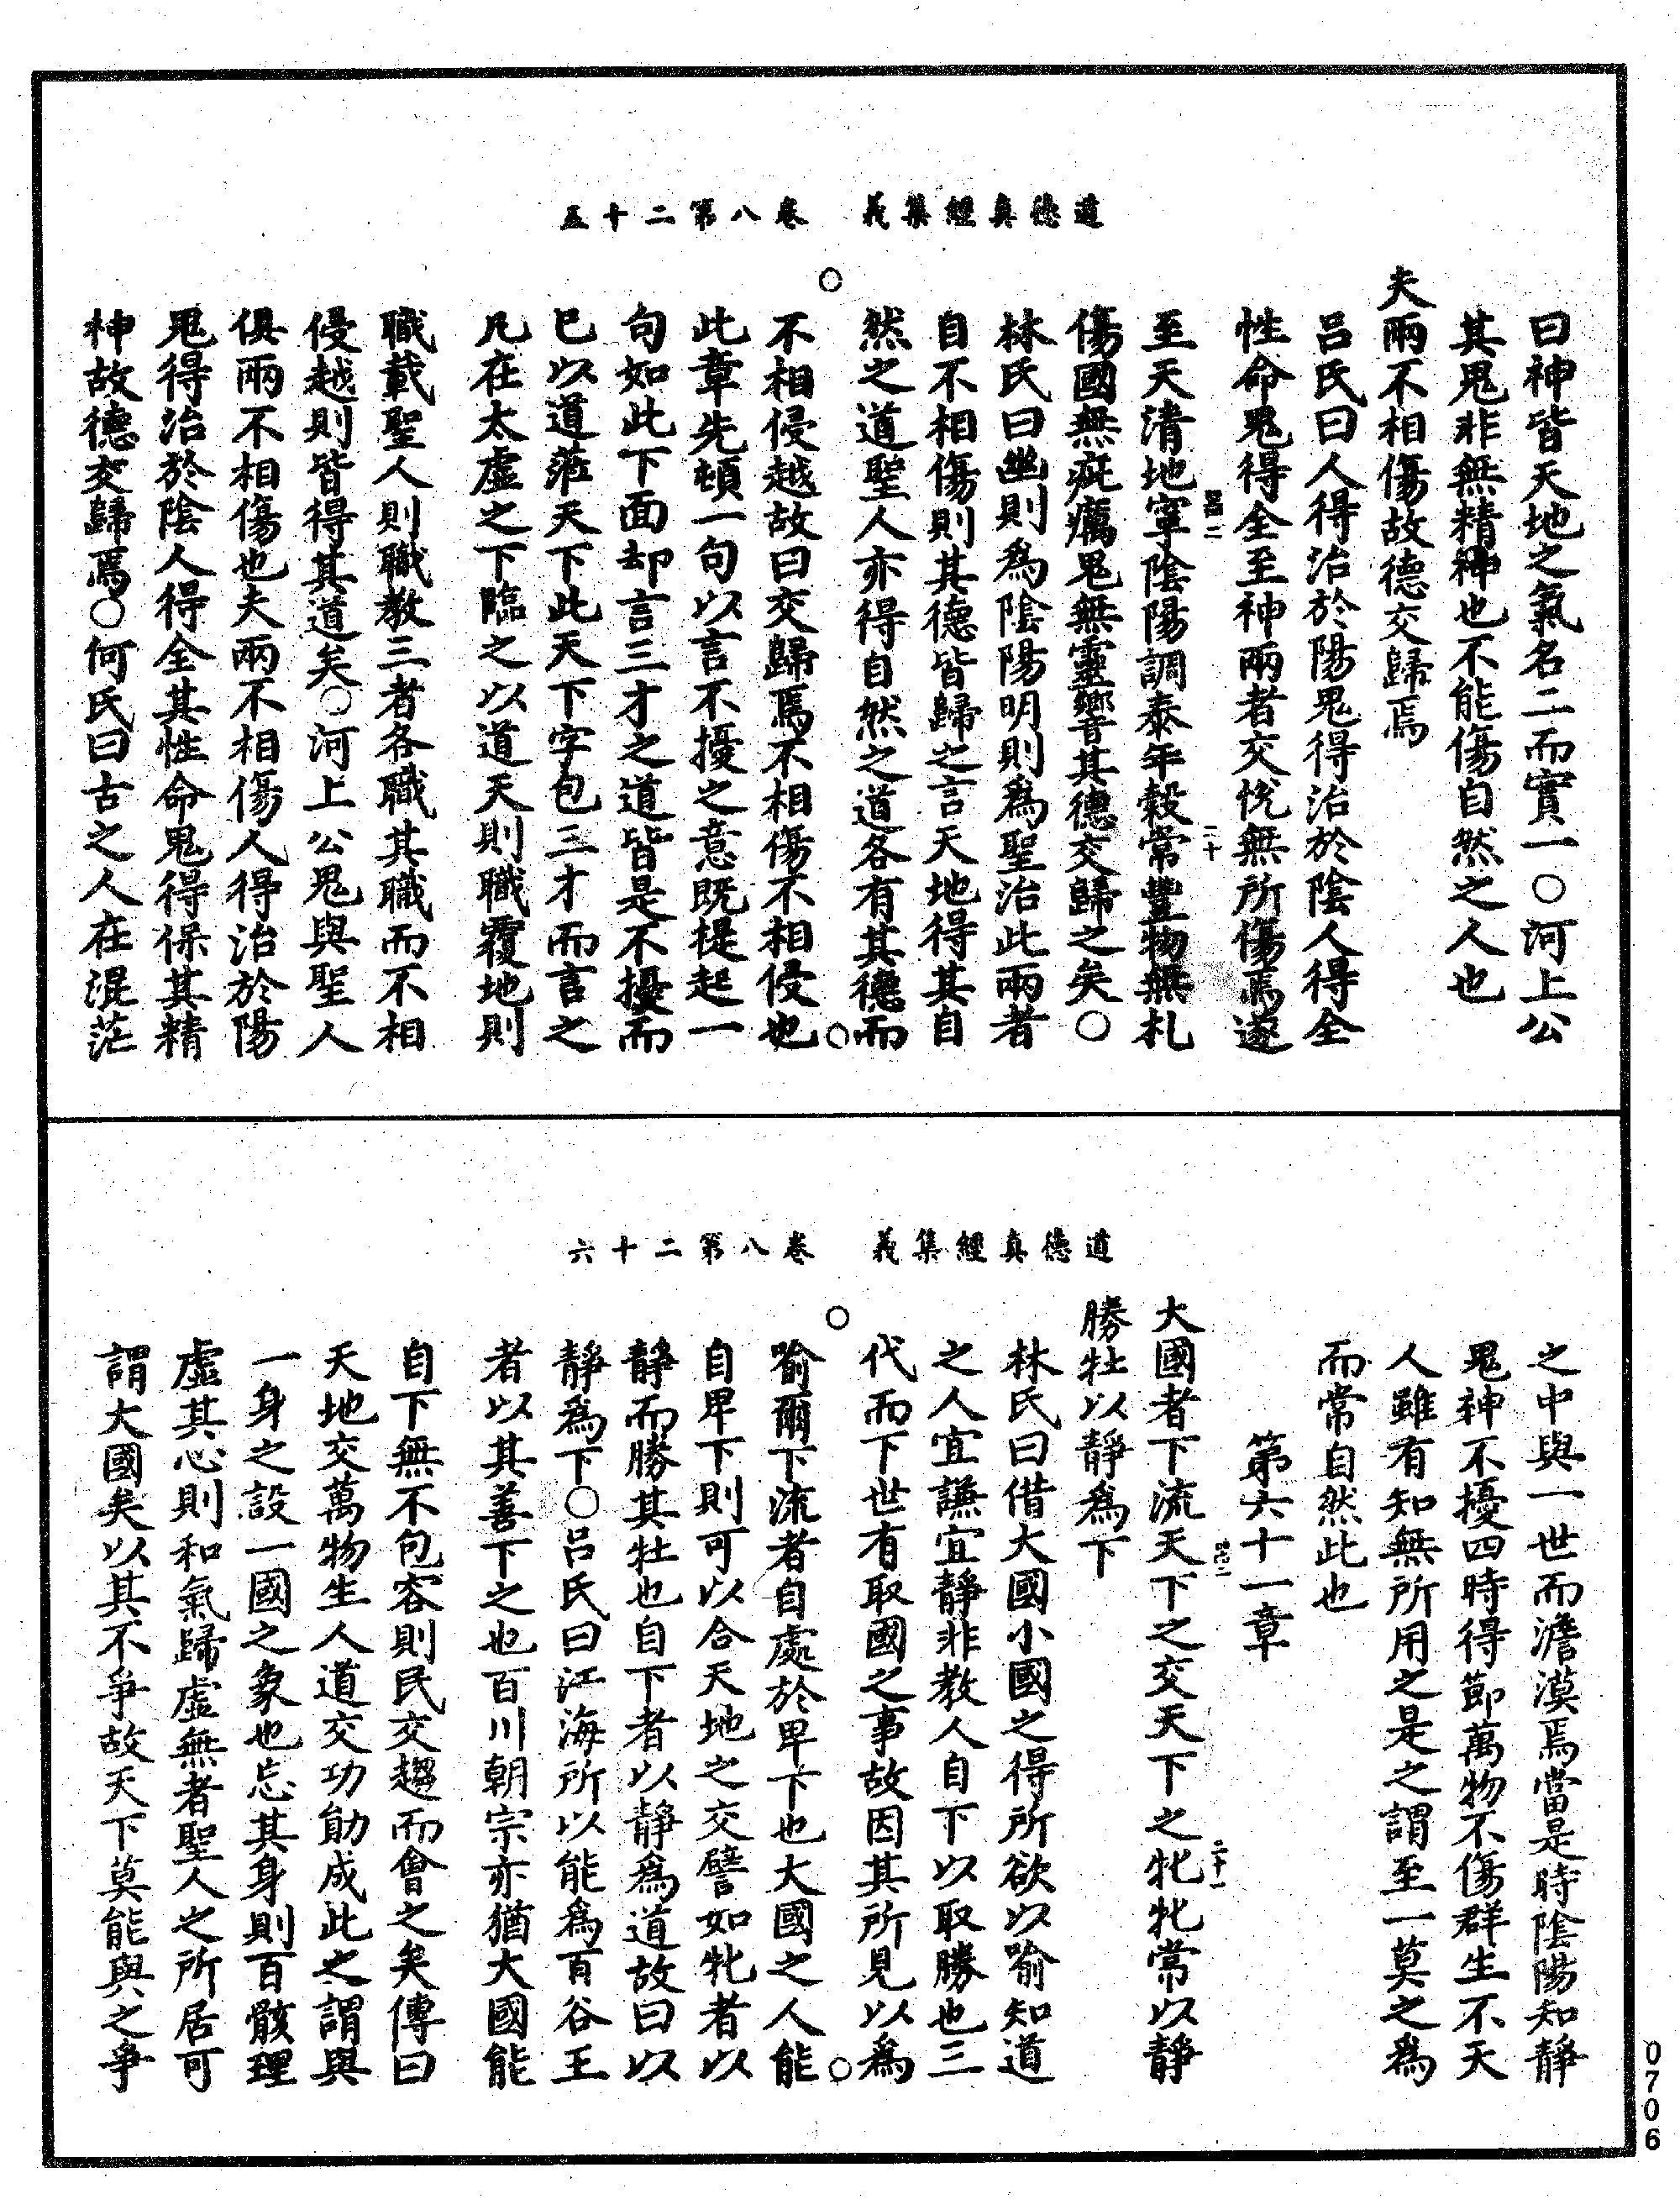 道德真經集義　卷八第二十五
曰神皆天地之氣名二而實一○河上公
其鬼非無精神也不能傷自然之人也
夫兩不相傷故德交歸焉
呂氏曰人得治於陽鬼得治於陰人得全
性命鬼得全至神兩者交悅無所傷焉遂
二十
至天清地寧陰陽調泰年穀常豐物無札
傷國無疵癘鬼無靈響其德交歸之矣○
林氏曰幽則為陰陽明則為聖治此兩者
自不相傷則其德皆歸之言天地得其自
然之道聖人亦得自然之道各有其德而
不相侵越故曰交歸焉不相傷不相侵也
此章先頓一句以言不擾之意既提起一
句如此下面却言三才之道皆是不擾而
已以道蒞天下此天下字包三才而言之
凡在太虛之下臨之以道天則職覆地則
職載聖人則職教三者各職其職而不相
侵越則皆得其道矣○河上公鬼與聖人
俱兩不相傷也夫兩不相傷人得治於陽
鬼得治於陰人得全其性命鬼得保其精
神故德交歸焉○何氏曰古之人在混茫
道德真經集義　卷八第二十六
之中與一世而澹漠焉當是時陰陽知靜
鬼神不擾四時得節萬物不傷群生不夭
人雖有知無所用之是之謂至一莫之為
而常自然此也
第六十一章
二十一
大國者下流天下之交天下之牝牝常以靜
勝牡以靜為下
林氏曰借大國小國之得所欲以喻知道
之人宜謙宜靜非教人自下以取勝也三
代而下世有取國之事故因其所見以為
喻爾下流者自處於卑下也大國之人能
自卑下則可以合天地之交譬如牝者以
靜而勝其牡也自下者以靜為道故曰以
靜為下○呂氏曰江海所以能為百谷王
者以其善下之也百川朝宗亦猶大國能
自下無不包容則民交趨而會之矣傳曰
天地交萬物生人道交功勛成此之謂與
一身之設一國之象也忘其身則百骸理
虛其心則和氣歸虛無者聖人之所居可
謂大國矣以其不爭故天下莫能與之爭
0706